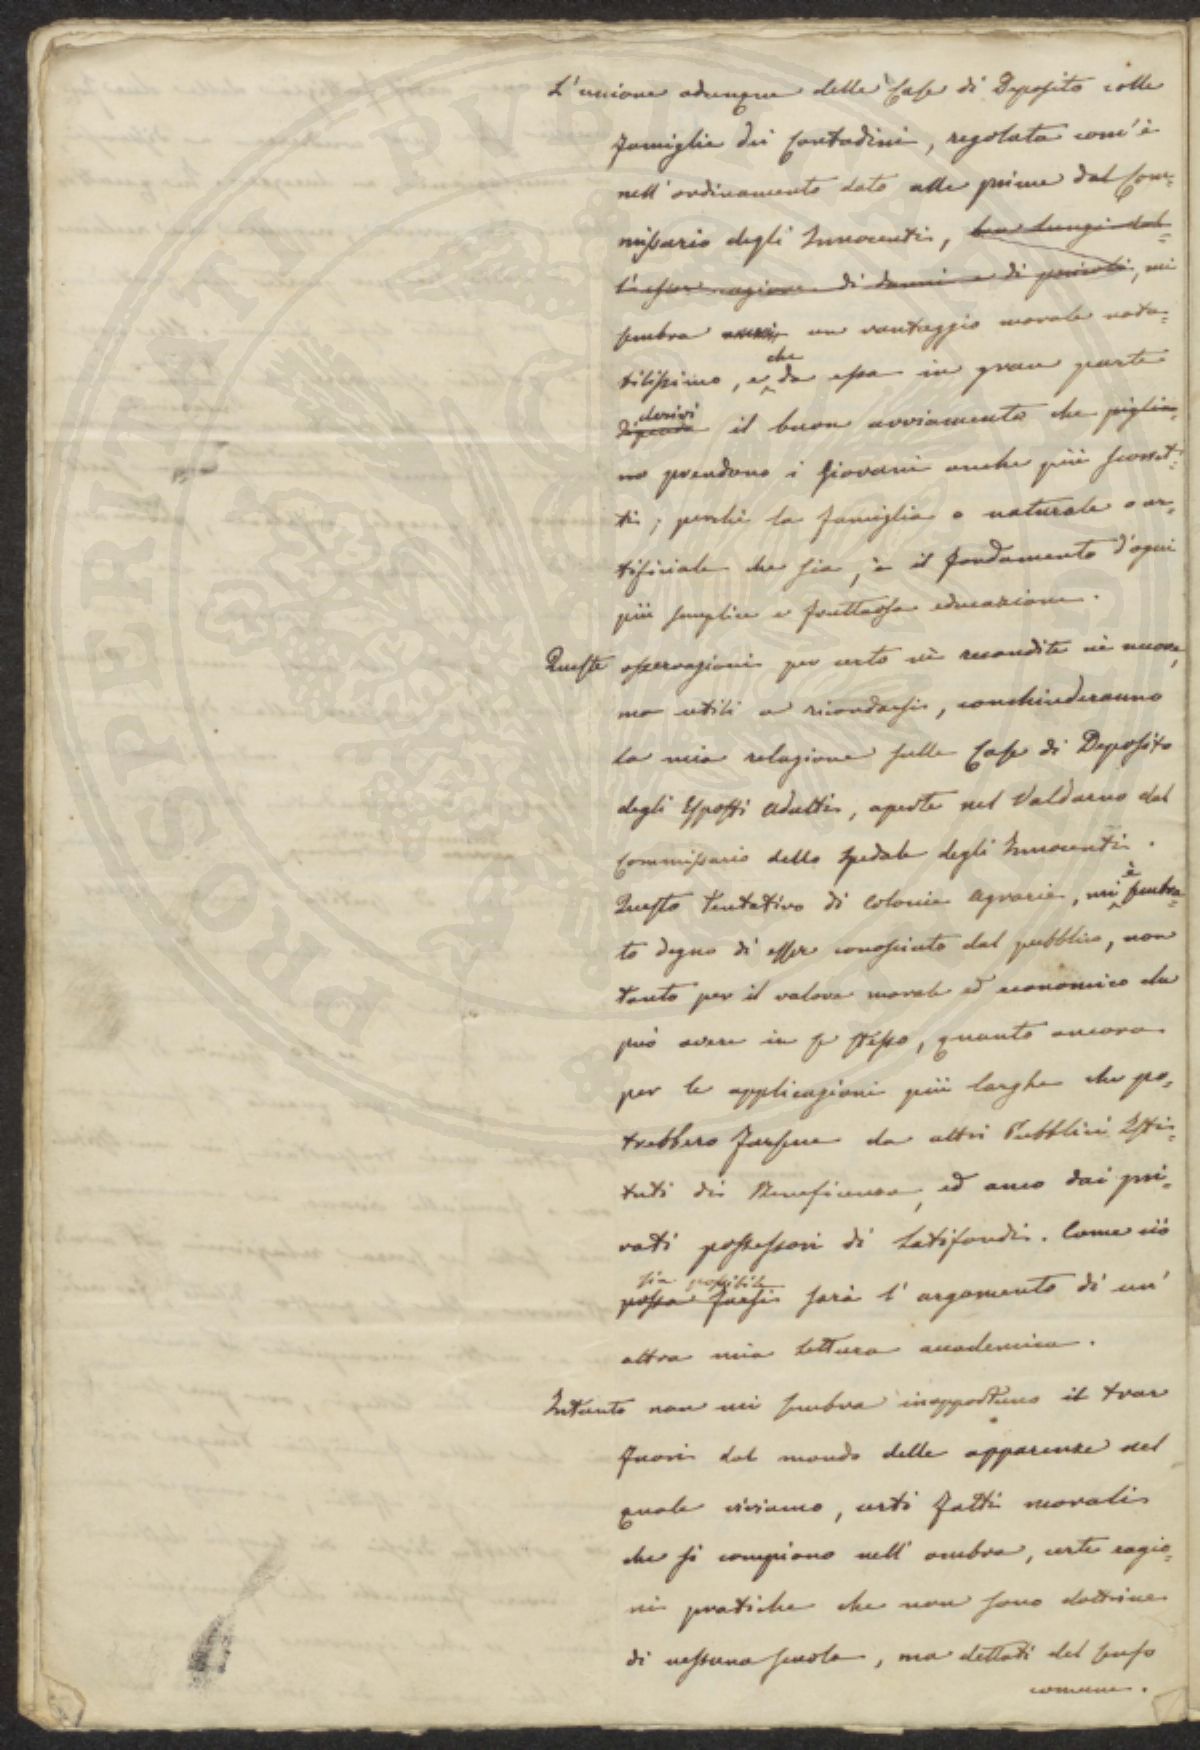 L'unione adunque delle Case di Deposito colle
famiglie dei Contadini, regolata com'è
nell'ordinamento dato alle prime dal Com=
missario degli Innocenti, ben lungi dal=
l'esser cagione di danni e di pericoli, mi
sembra anzi un vantaggio morale nota=
bilissimo, e che da essa in gran parte
dipenda derivi il buon avviamento che piglia=
no prendono i Giovani anche più scorret=
ti; perchè la famiglia o naturale o ar=
tificiale che sia, è il fondamento d'ogni
più semplice e fruttuosa educazione.
Queste osservazioni per certo nè recondite nè nuove,
ma utili a ricordarsi, conchiuderanno
la mia relazione sulle Case di Deposito
degli Esposti adulti, aperte nel Valdarno dal
Commissario dello Spedale degli Innocenti.
Questo tentativo di Colonie agrarie, mi è sembra=
to degno di esser conosciuto dal pubblico, non
tanto per il valore morale ed economico che
può avere in se stesso, quanto ancora
per le applicazioni più larghe che po=
trebbero farsene da altri Pubblici Isti=
tuti di Beneficenza, ed anco dai pri=
vati possessori di Latifondi. Come ciò
possa farsi sia possibile sarà l'argomento di un'
altra mia Lettura accademica.
Intanto non mi sembra inopportuno il trar
fuori dal mondo delle apparenze nel
quale viviamo, certi fatti morali
che si compiono nell'ombra, certe ragio=
ni pratiche che non sono dottrine
di nessuna scuola, ma dettati del senso
comune.
PROSPERITATI PVBLICAE